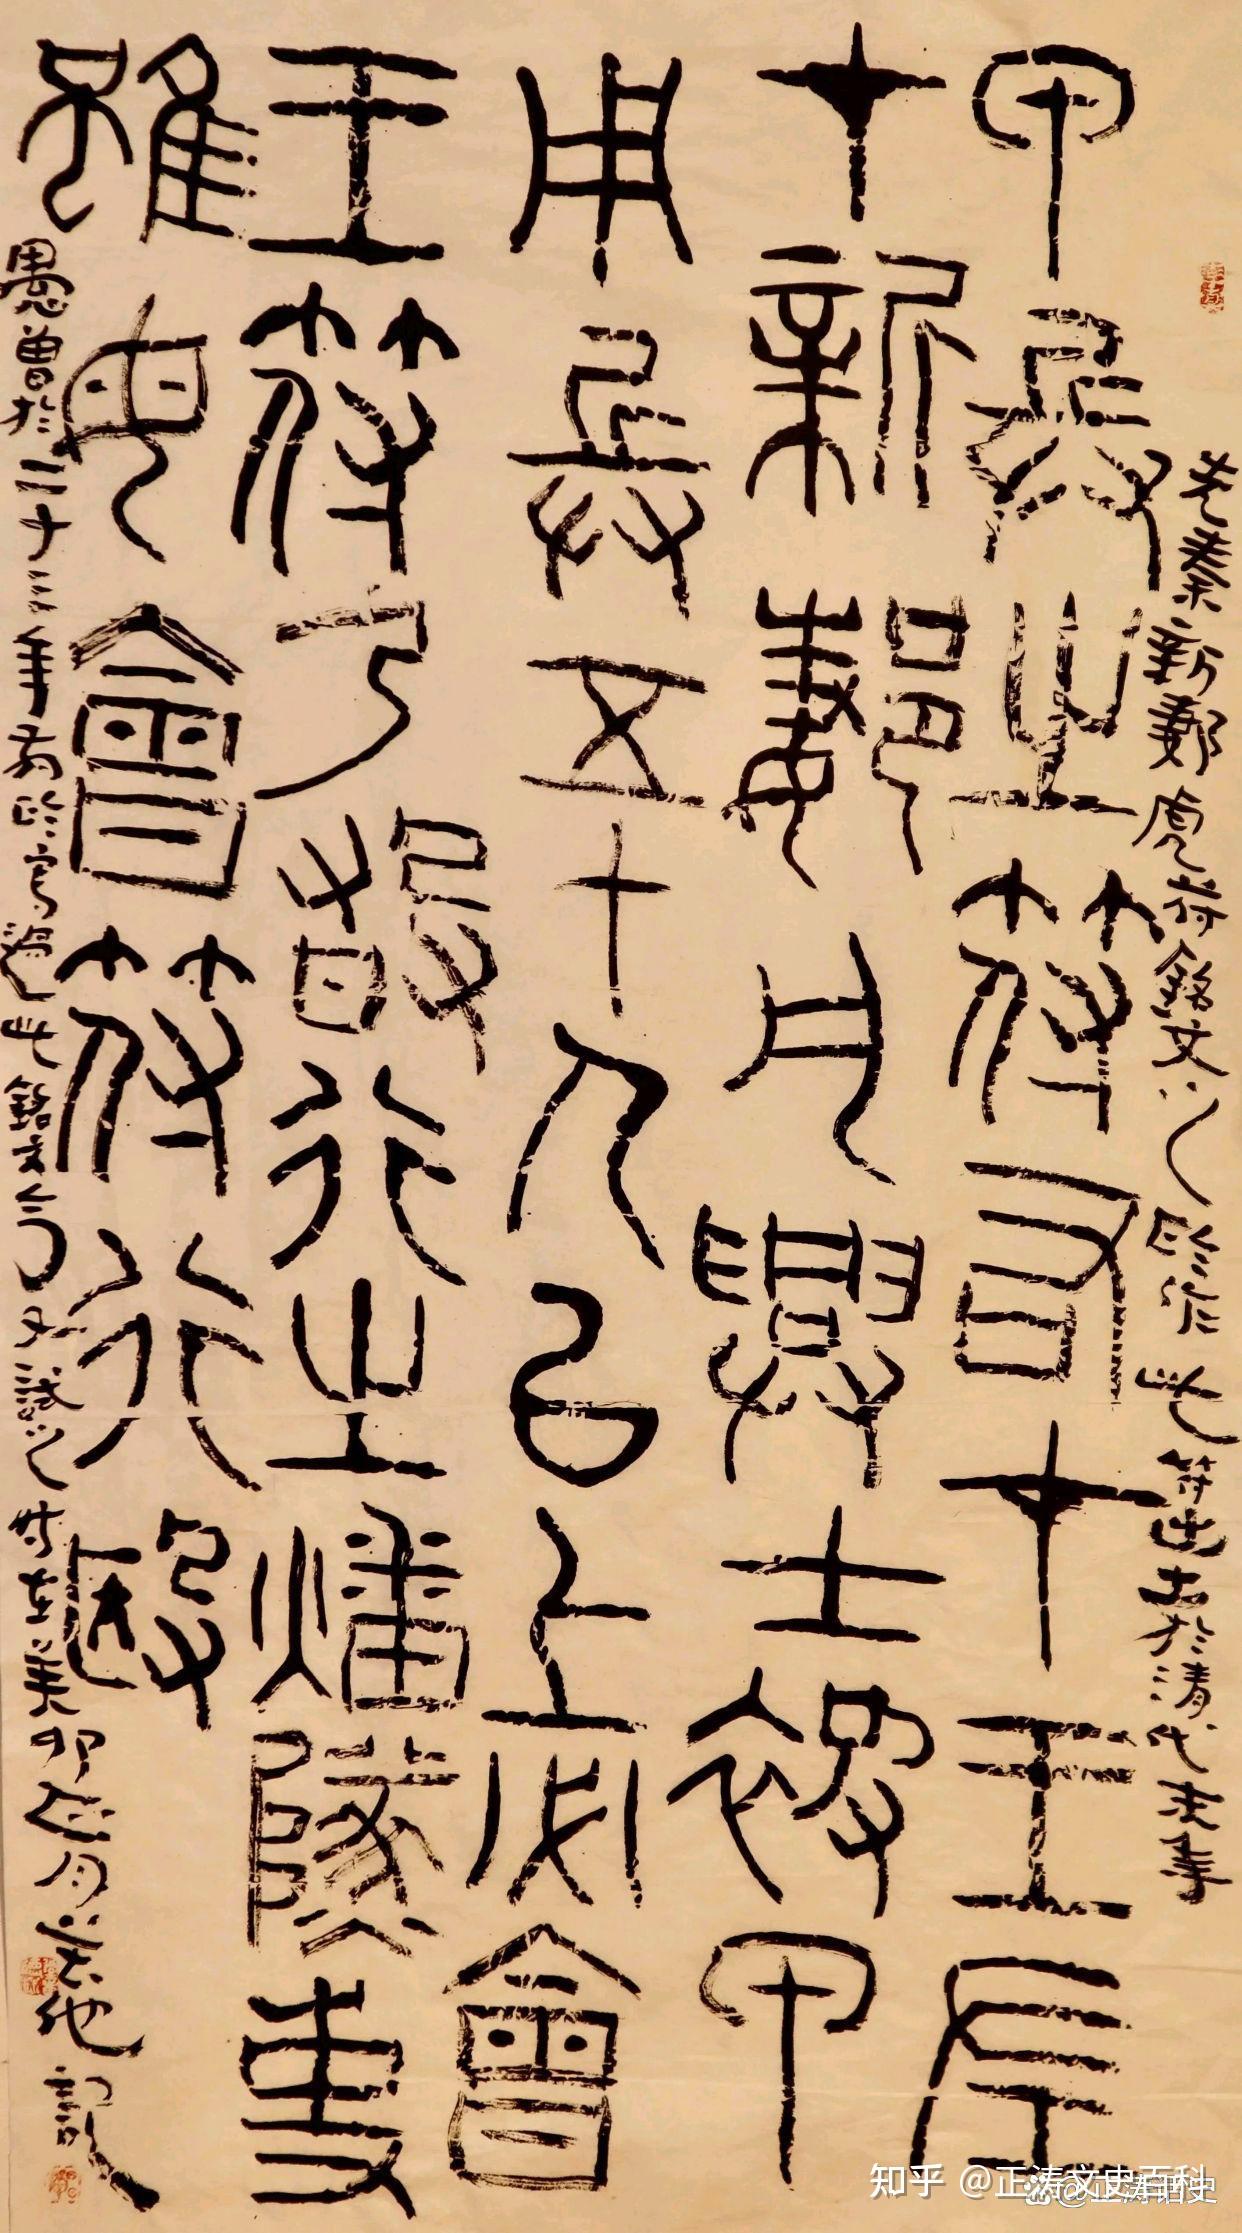 先秦新郪虎符銘文之臨作此符出土於清代末年
甲兵之符右才王左
才新郪凡興士被甲
用兵五十人以上必會
王符乃敢行之燔隊事
雖毋會符行殹
愚曾於二十三年前臨寫過此銘文今又試之時在癸卯正月記
知乎 @正涛文史百科
@正涛话史